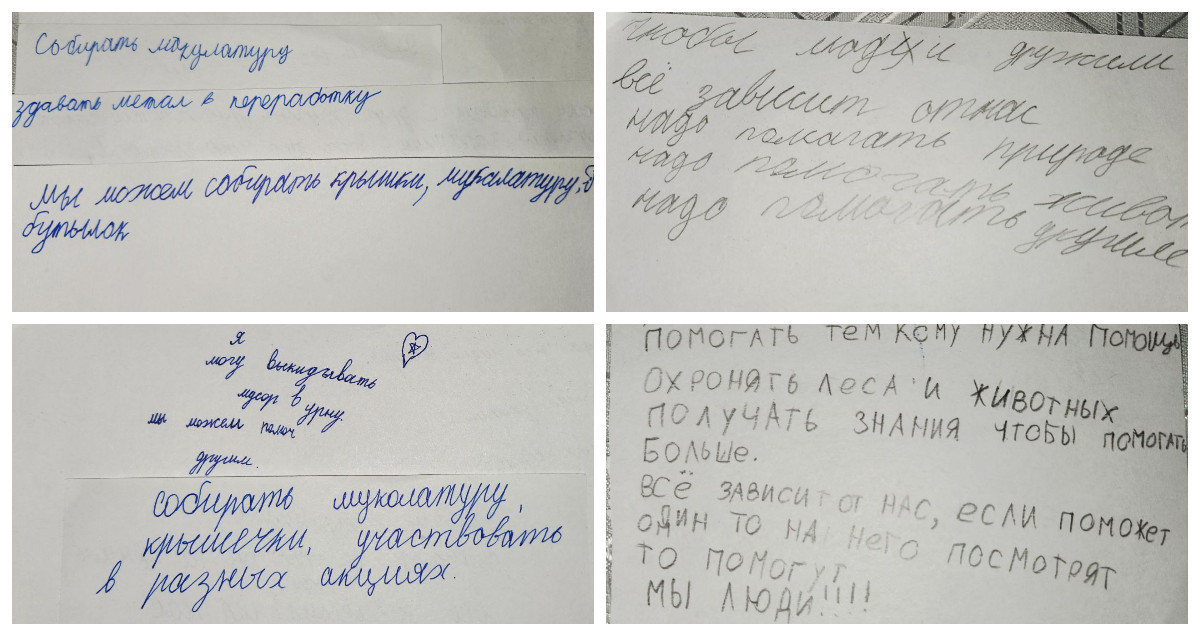 Собирать макулатуру
здавать метал в переработку
мы можем собирать крышки, мукалатуру,
бутылок
чтобы люди дружили
всё зависит отнас
надо помогать природе
надо помогать живот
надо помогать другиле
Я
могу выкидывать
мусор в урну.
мы можем помоч
другим.
собирать муколатуру,
крышечки, участвовать
в разных акциях.
ПОМОГАТЬ тем кому НУЖНА ПОМОЩЬ
ОХРОНЯТЬ ЛЕСА И ЖИВОТНЫХ
ПОЛУЧАТЬ ЗНАНИЯ ЧТОБЫ ПОМОГАТЬ
БОЛЬШЕ.
ВСЁ ЗАВИСИТ ОТ НАС, если поможет
один то на него посмотрят
то помогут
МЫ ЛЮДИ!!!!